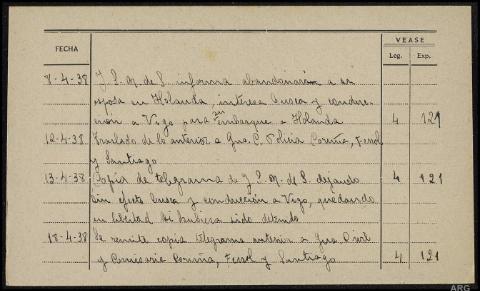 FECHA VEASE
Leg. Exp.
8-4-38 J. S. M. de S. informa abandonaron a su
esposa en Holanda, interesa busca y conduc-
ción a Vigo para ser embarque a Holanda 4 121
12-4-38 Traslado de lo anterior a Gua. C. Policia Coruña, Ferrol
y Santiago
13-4-38 Copia de telegrama de J. S. M. de S. dejando 4 121
sin efecto busca y conducción a Vigo, quedando
en libertad si hubiera sido detenido
18-4-38 Se remite copia telegrama anterior a Gua. Civil
y Comisaria Coruña, Ferrol y Santiago 4 121
ARG